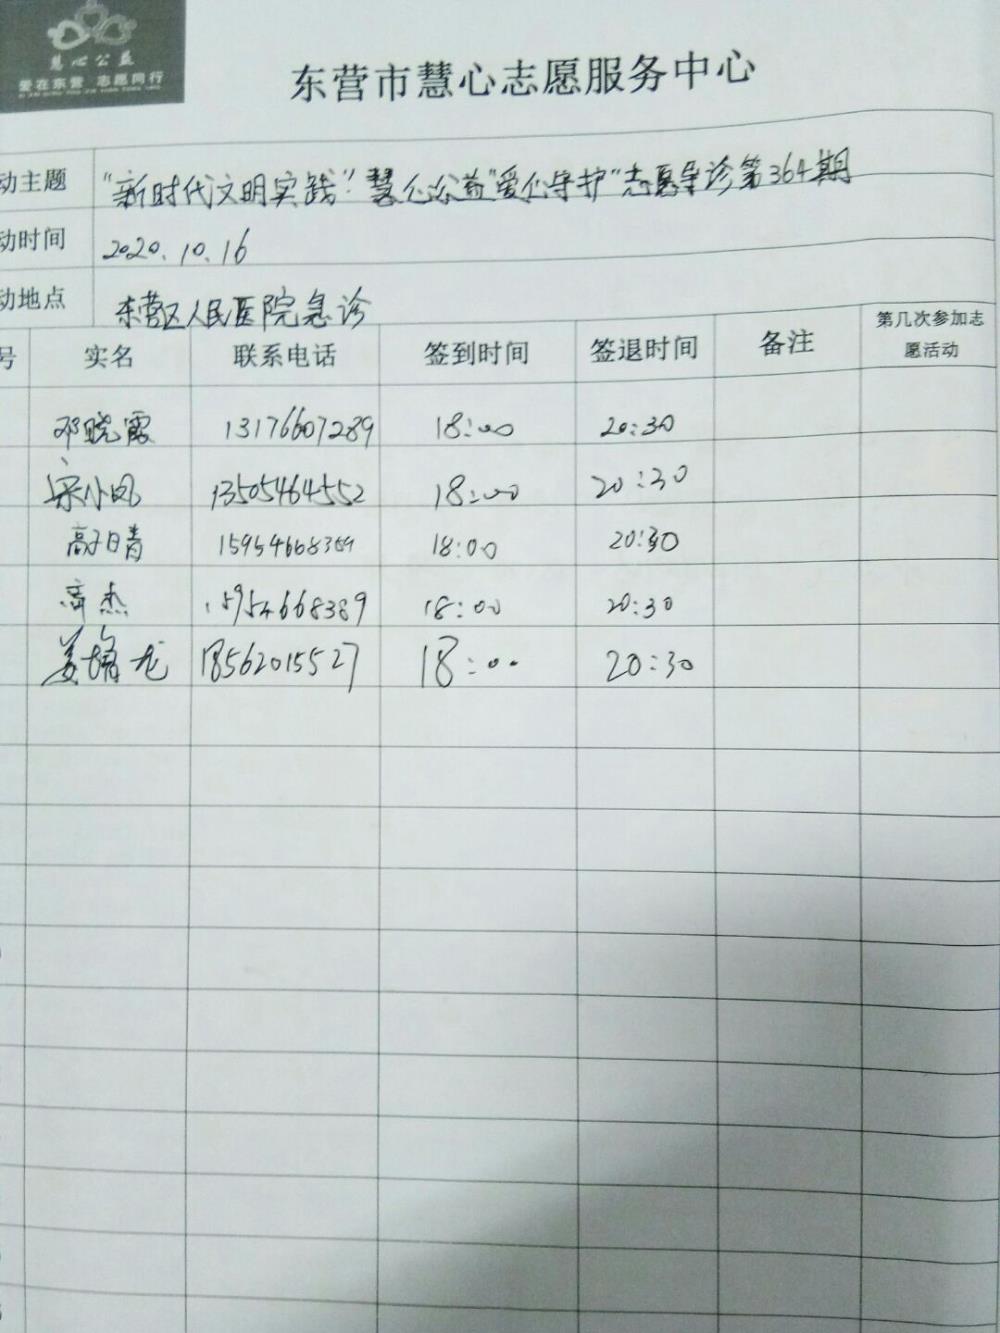 慧心公益
爱在东营 志愿同行
东营市慧心志愿服务中心
动主题 "新时代文明实践".慧心公益"爱心守护"志愿导诊第364期
动时间 2020.10.16
动地点 东营区人民医院急诊
号 实名 联系电话 签到时间 签退时间 备注 第几次参加志愿活动
邓晓霞 13176607289 18:00 20:30
宋小凤 13505464552 18:00 20:30
高子晴 18:00 20:30
高杰 15954668389 18:00 20:30
姜龙 18562015527 18:00 20:30